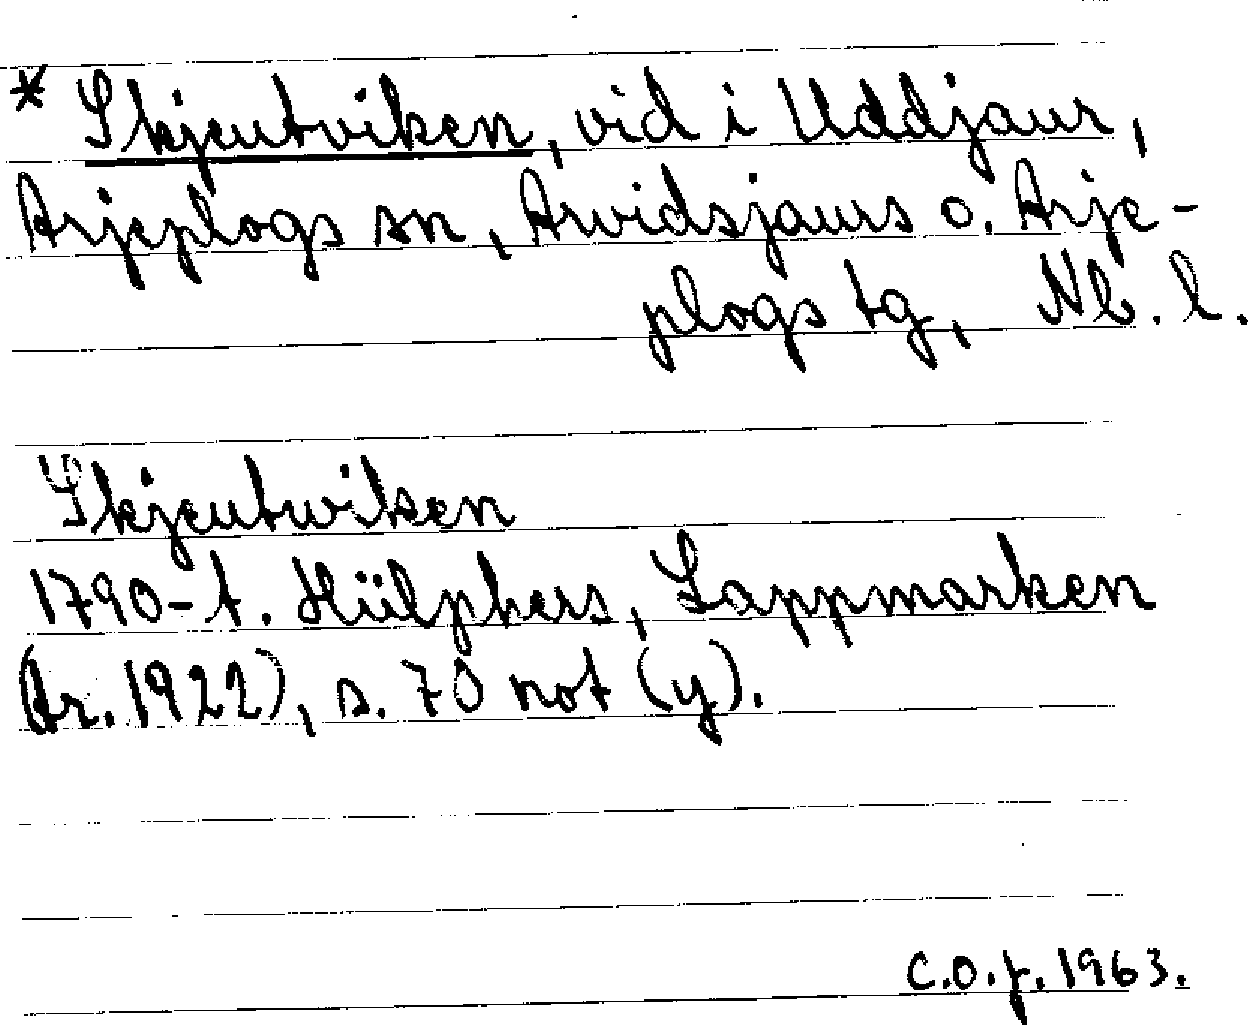 * Skjeutviken, vid i Uddjaur,
Arjeplogs sn, Arvidsjaurs o. Arje-
plogs tg, Nb. l.
Skjeutwiken
1790-t. Hülphers, Lappmarken
(tr. 1922), s. 70 not (y).
C.O.f. 1963.